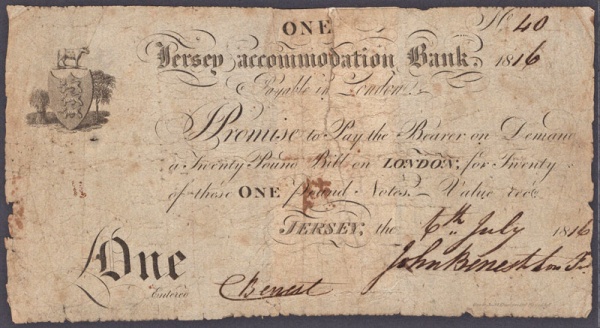 ONE
No. 40
Jersey accommodation Bank. 1816
Payable in London.
I Promise to Pay the Bearer on Demand
a Twenty Pound Bill on LONDON; for Twenty
of these ONE Pound Notes. Value recd.
JERSEY, the 6th July 1816
John Benest
One
Entered Benest